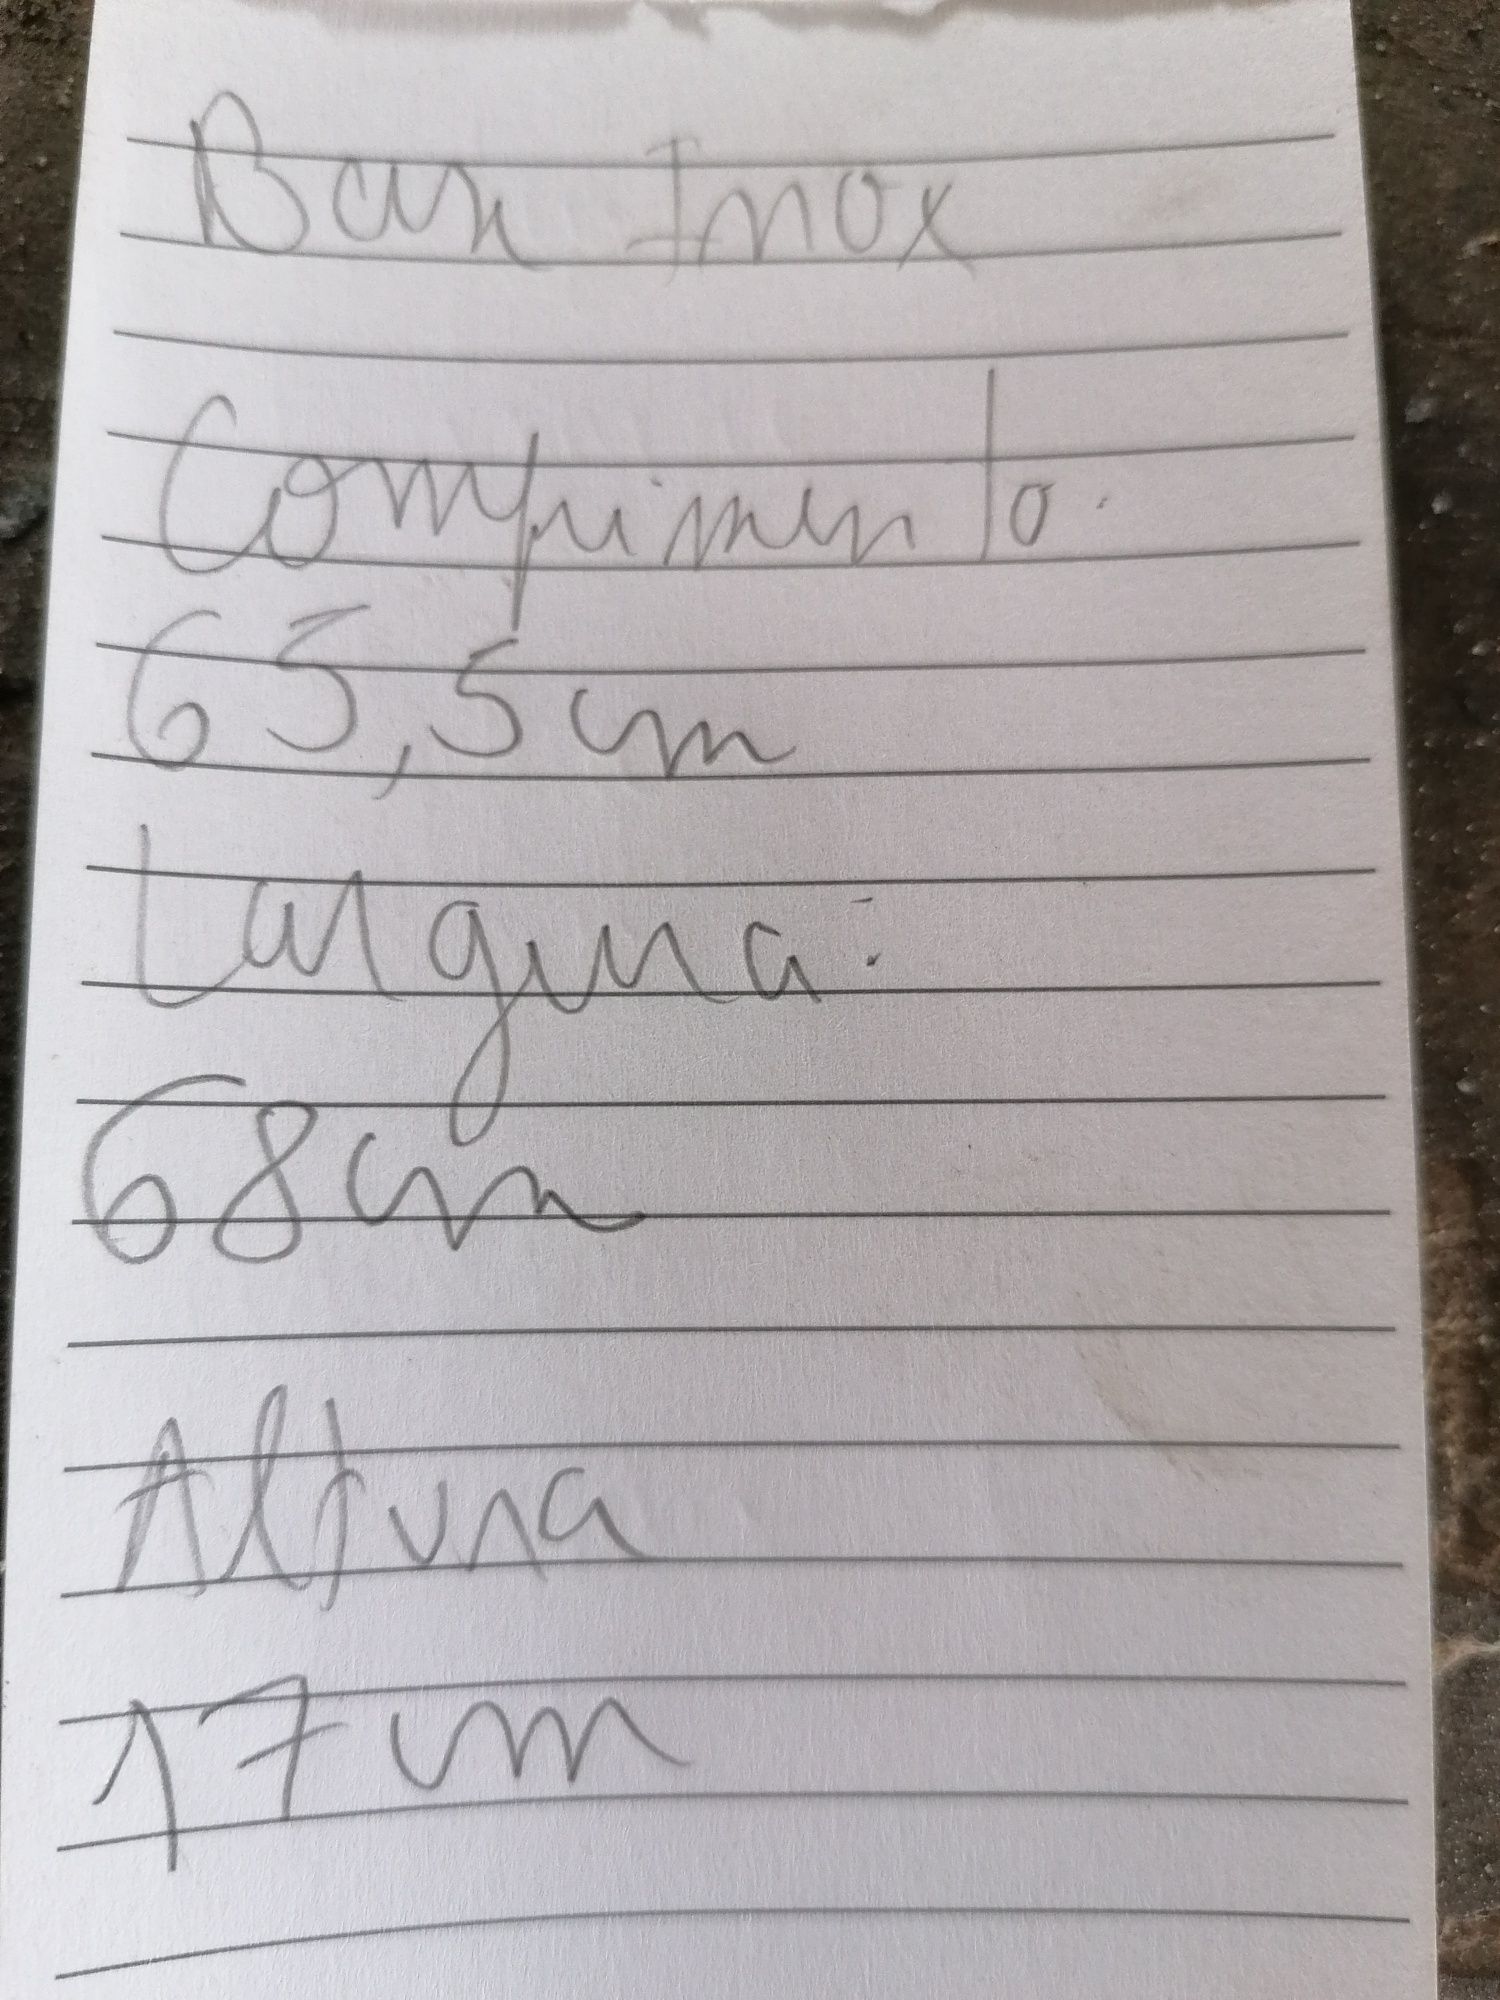 Bar Inox
Comprimento.
65,5cm
Largura:
68cm
Altura
17cm